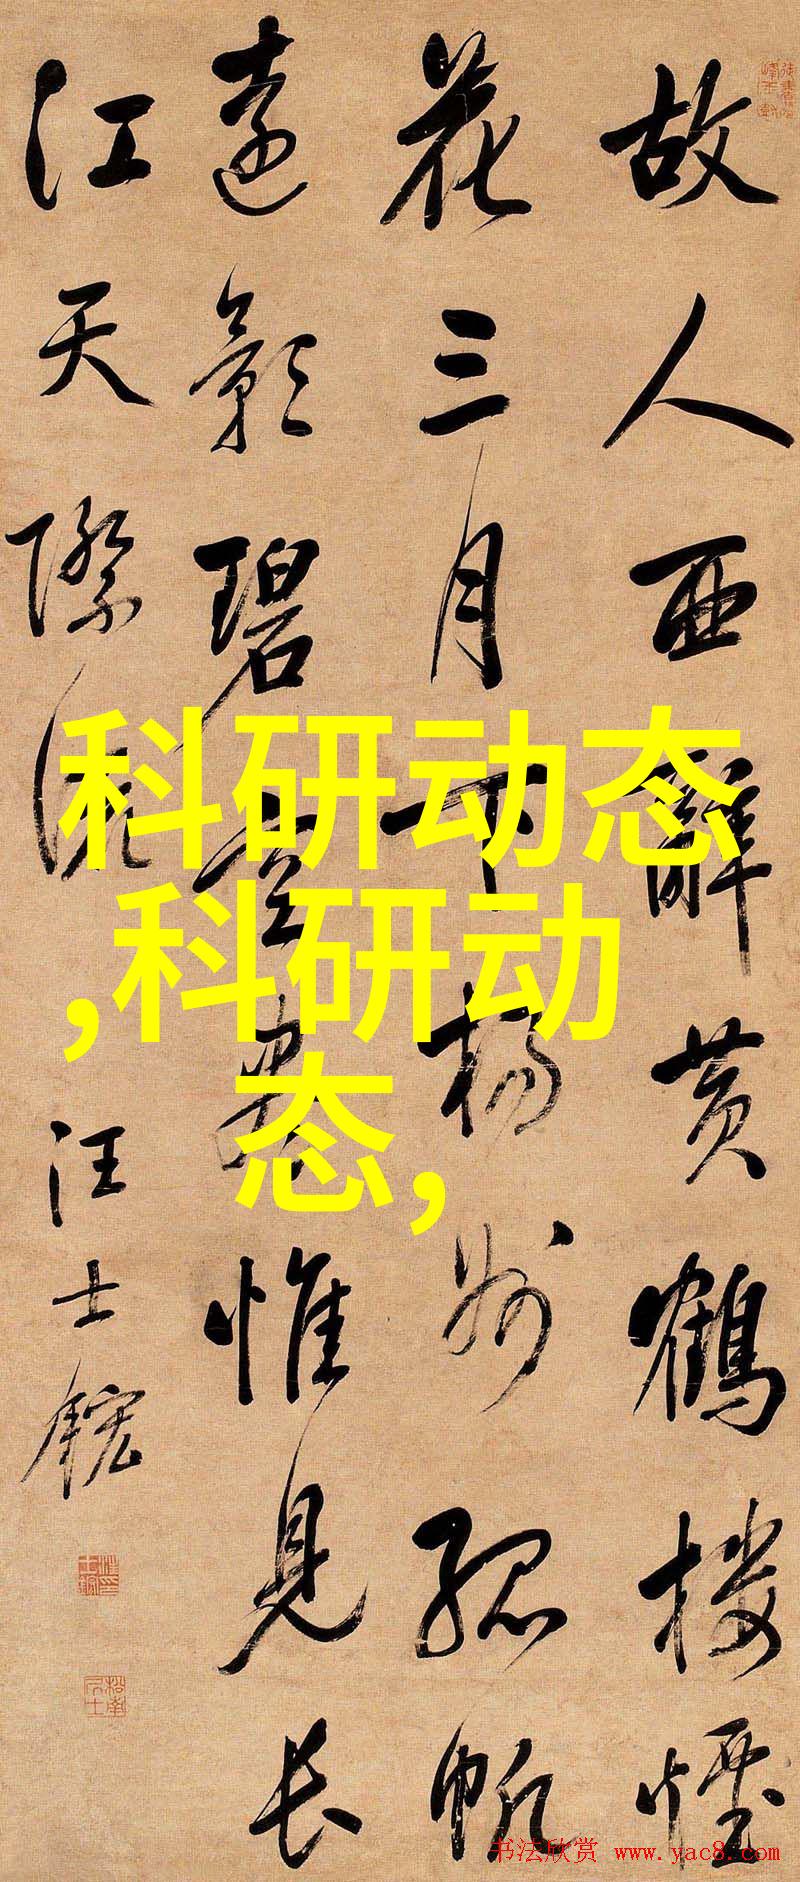 故人西辭黄鶴樓煙
花三月下揚州孤帆
遠影碧空盡惟見長
江天際流
汪士鋐
科研动态
,科研动
态,
书法欣赏 www.yac8.com